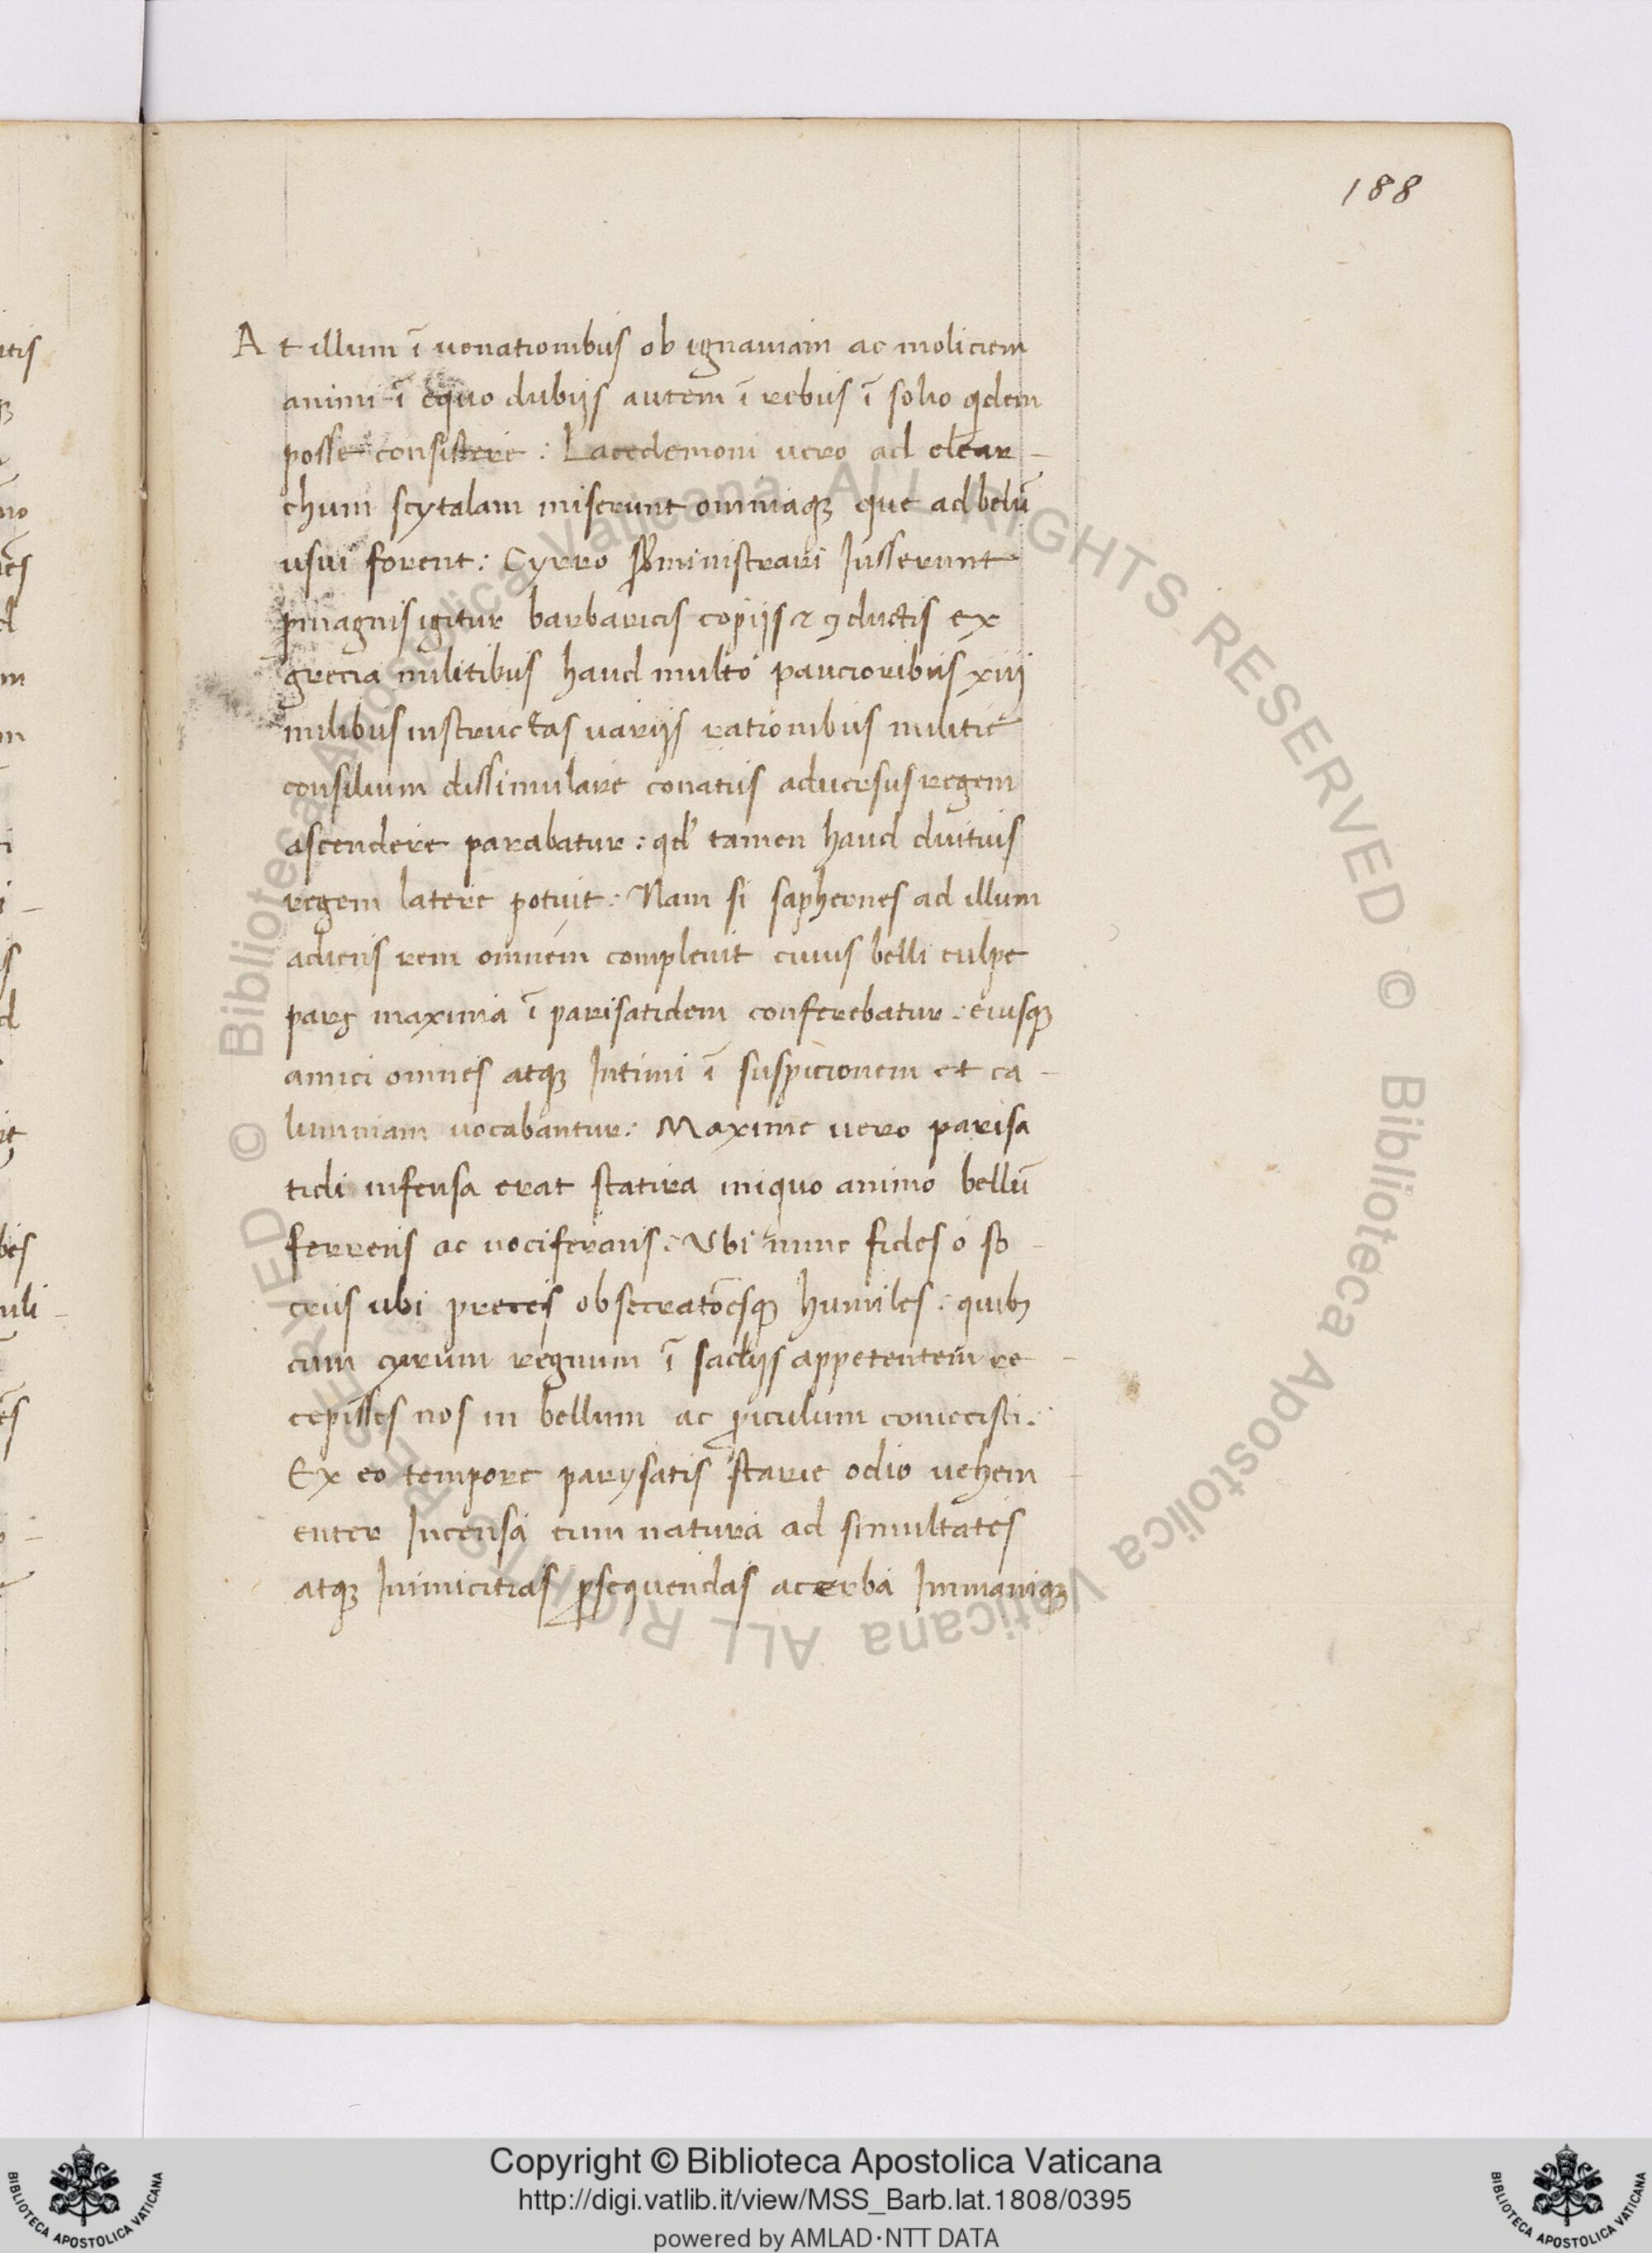 188
At illum ī uenationibus ob ignauiam ac moliciem
animi ī equo dubijs autem ī rebus ī solio qdem
posse consistere : Lacedemoni uero ad clear-
chum scytalam miserunt omniaqꝫ que ad belū
usui forent : Cyrro ministrari Jusserunt
magnis igitur barbaricis copijs & ꝯductis ex
grecia militibus haud multo paucioribus xiij
milibus instructas uarijs rationibus militie
consilium dissimulare conatus aduersus regem
ascendere parabatur : qd tamen haud diutius
regem latere potuit : Nam si saphernes ad illum
adiens rem omnem compleuit cuius belli culpe
pars maxima ī parisatidem conferebatur : eiusqꝫ
amici omnes atqꝫ Intimi ī suspicionem et ca-
lumniam uocabantur : Maxime uero parisa
tidi infensa erat statira iniquo animo bellū
ferrens ac uociferans : Vbi nunc fides o so-
crus ubi preces obsecratōesqꝫ humiles : quibꝫ
cum cyrum regnum ī sadijs appetentem re-
cepisses nos in bellum ac ꝑiculum coniecisti :
Ex eo tempore parysatis starie odio uehem-
enter Incensa cum natura ad simultates
atqꝫ Inimicitias ꝓsequendas acerba Immaniqꝫ
© Biblioteca Apostolica Vaticana ALL RIGHTS RESERVED © Biblioteca Apostolica Vaticana ALL RIGHTS RESERVED
Copyright © Biblioteca Apostolica Vaticana
http://digi.vatlib.it/view/MSS_Barb.lat.1808/0395
powered by AMLAD·NTT DATA
BIBLIOTECA APOSTOLICA VATICANA
BIBLIOTECA APOSTOLICA VATICANA